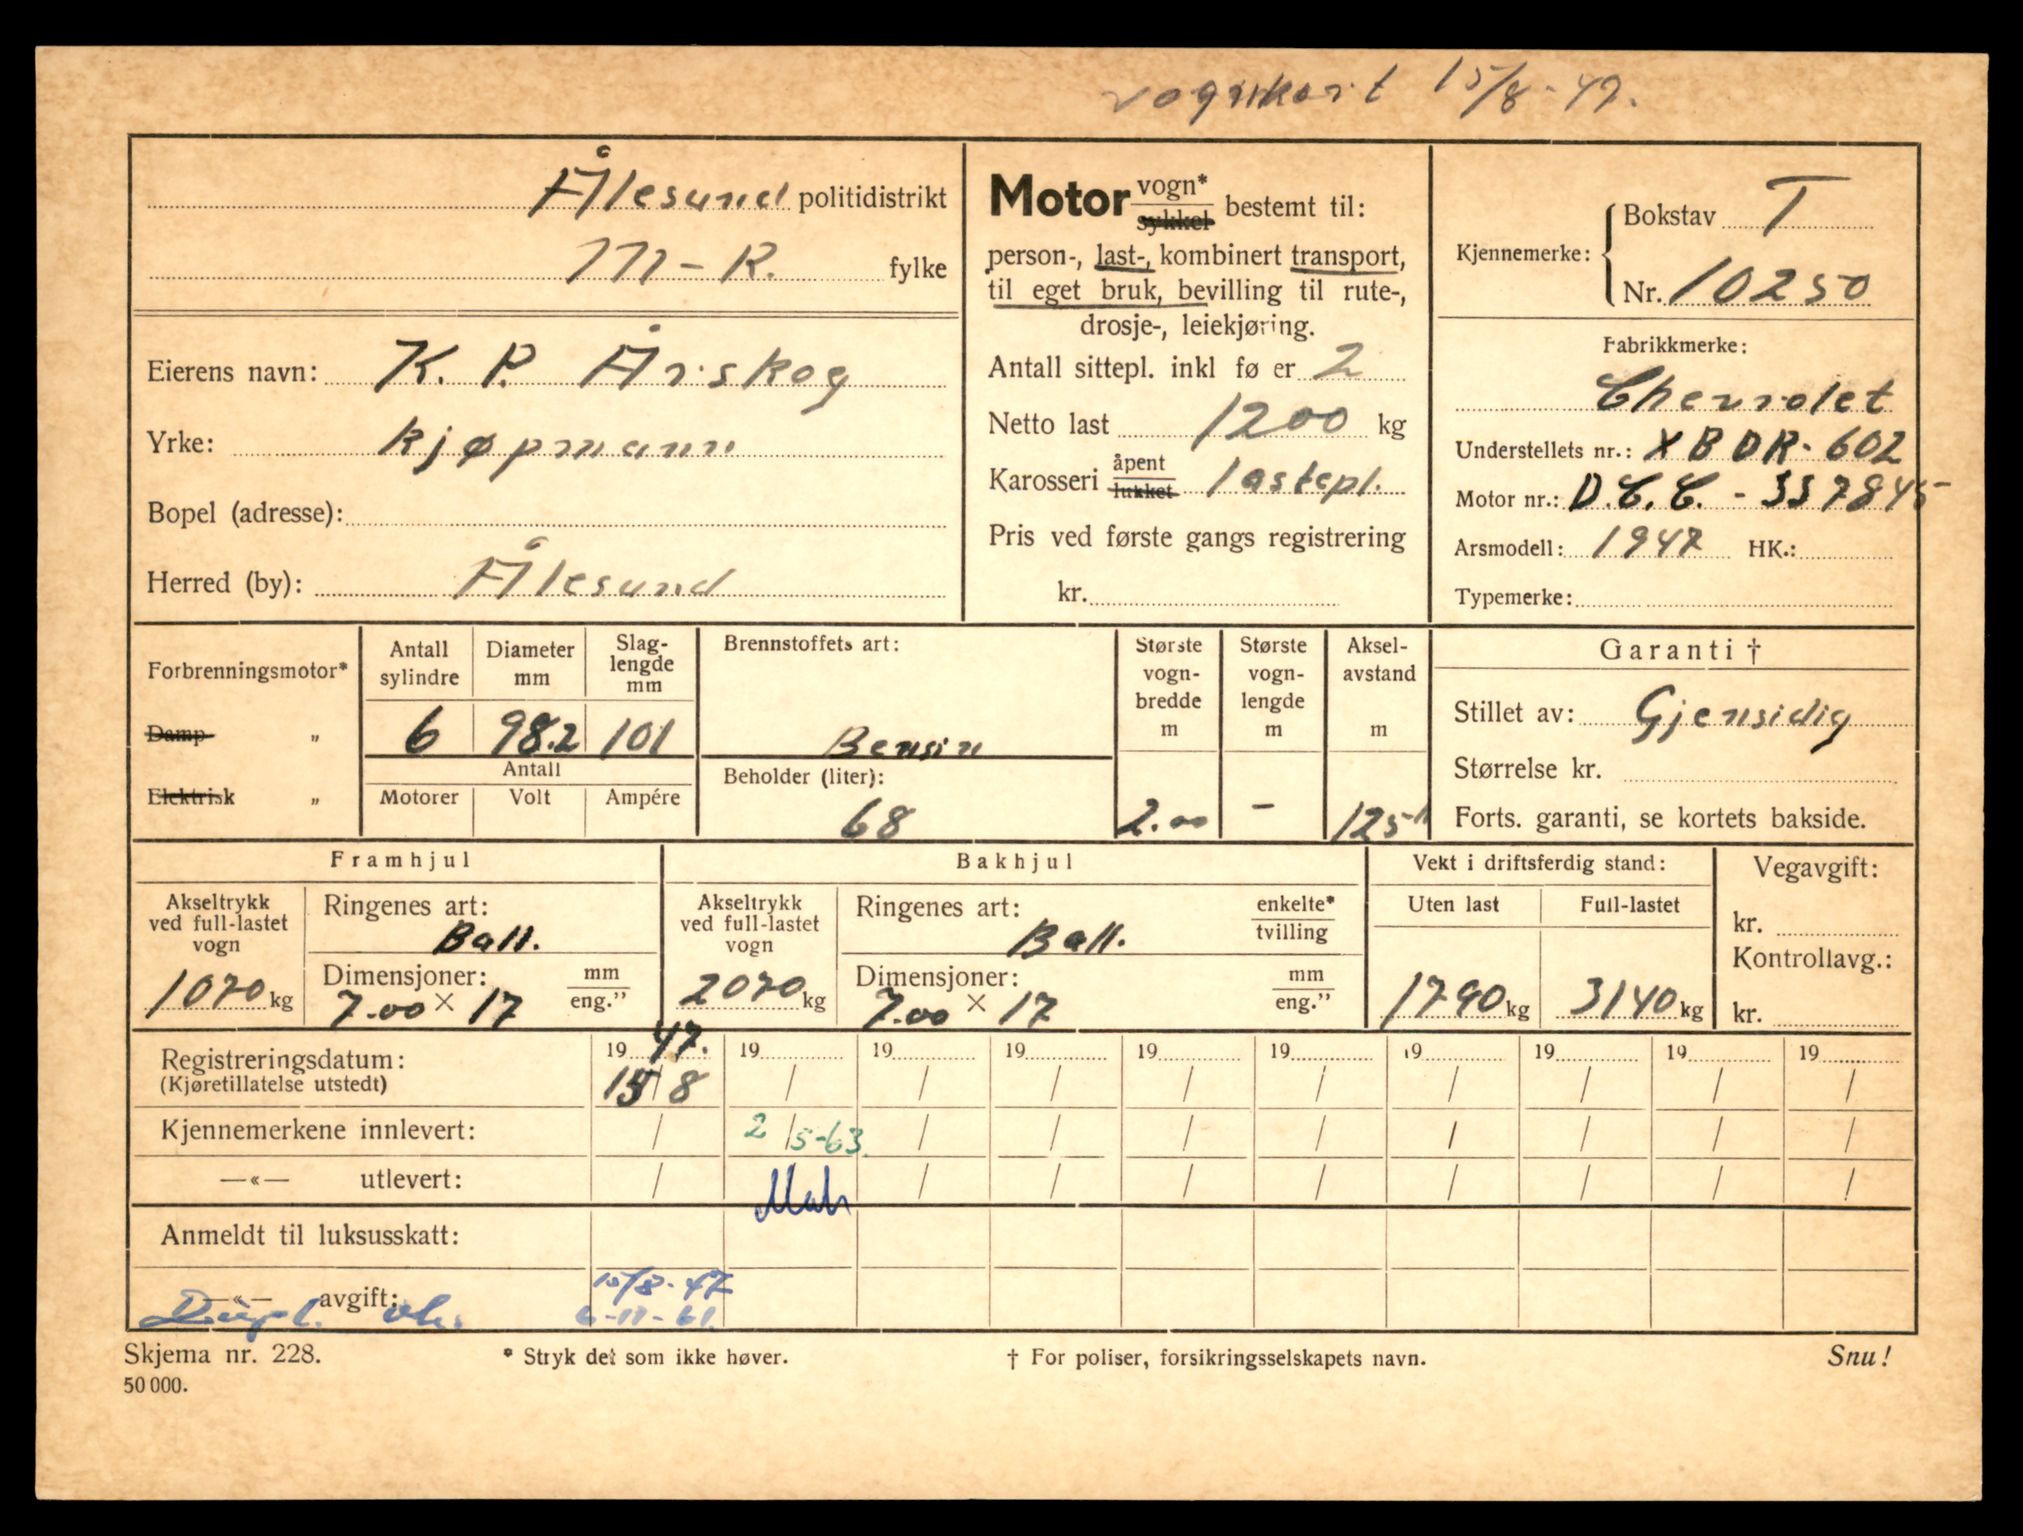 vognkort 15/8-47.
Ålesund politidistrikt
M-R. fylke
Eierens navn: K. P. Årskog
Yrke: kjøpmann
Bopel (adresse):
Herred (by): Ålesund
Motor vogn* sykkel bestemt til:
person-, last-, kombinert transport,
til eget bruk, bevilling til rute-,
drosje-, leiekjøring.
Antall sittepl. inkl fø er 2
Netto last 1200 kg
Karosseri åpent lukket lastepl.
Pris ved første gangs registrering
kr.
Kjennemerke: Bokstav T
Nr. 10250
Fabrikkmerke:
Chevrolet
Understellets nr.: XBDR-602
Motor nr.: D.C.C. - 337845
Arsmodell: 1947 HK.:
Typemerke:
Forbrenningsmotor*
Damp "
Elektrisk "
Antall sylindre
Diameter mm
Slag-lengde mm
6 98.2 101
Antall
Motorer Volt Ampére
Brennstoffets art:
Bensin
Beholder (liter):
68
Største vogn-bredde m
2.00
Største vogn-lengde m
-
Aksel-avstand m
125"
Garanti †
Stillet av: Gjensidig
Størrelse kr.
Forts. garanti, se kortets bakside.
Framhjul
Akseltrykk ved full-lastet vogn
1070 kg
Ringenes art:
Ball.
Dimensjoner: mm eng."
7.00 × 17
Bakhjul
Akseltrykk ved full-lastet vogn
2070 kg
Ringenes art: enkelte* tvilling
Ball.
Dimensjoner: mm eng."
7.00 × 17
Vekt i driftsferdig stand:
Uten last Full-lastet
1790 kg 3140 kg
Vegavgift:
kr.
Kontrollavg.:
kr.
Registreringsdatum: 1947. 19 19 19 19 19 19 19 19 19
(Kjøretillatelse utstedt) 15/8 / / / / / / / / /
Kjennemerkene innlevert: / 2/5-63. / / / / / / / /
—«— utlevert: / / / / / / / / /
Anmeldt til luksusskatt:
—«— avgift: 15/8-47
Dupl. 6-11-61.
Skjema nr. 228. * Stryk det som ikke høver. † For poliser, forsikringsselskapets navn. Snu!
50 000.